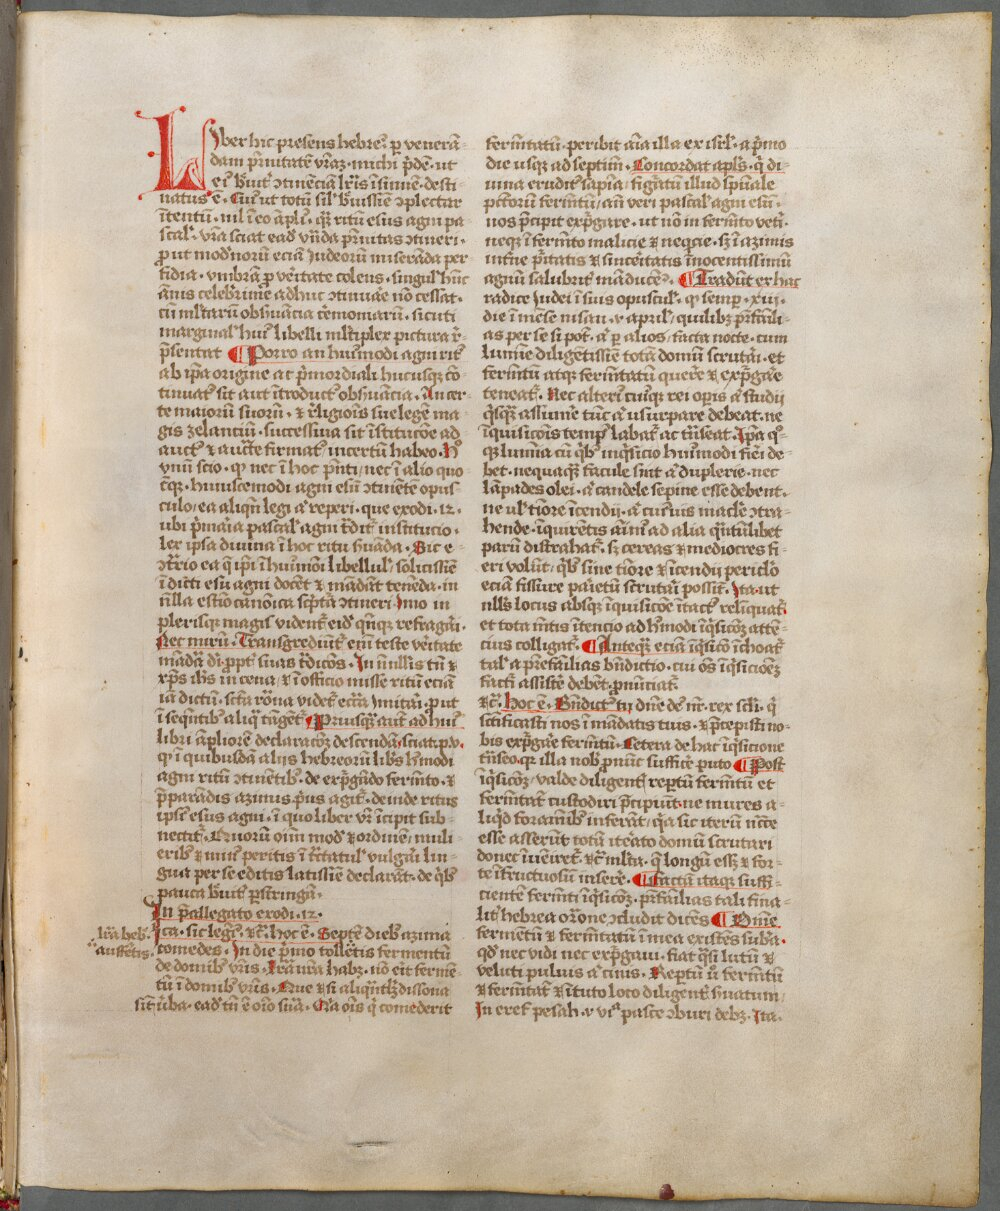 Liber hic presens hebreꝰ ꝑ venerā-
dam pr̄nitatē vr̄aꝫ · michi p̄dē · ut
ei b̄uit̄ ꝯtinēcia lr̄is īsinuē · desti-
natus ē · Cuiꝰ ut totū sil̄ b̄uissiē ꝯplectar
ītentū · nil ī eo āpliꝰ · qͣꝫ ritū esus agni pa-
scal̄ · vr̄a sciat eadē vn̄da pr̄nitas ꝯtineri ·
ꝓut modr̄noꝝ eciā Iudeorū miserāda per-
fidia · vmbrā ꝓ v̓itate colens · singul̄ hūc
ānis celebr̓rime adhuc ꝯtinuare nō cessat ·
cū ml̄taꝝ obsͣuācia c̓emoniaꝝ · sicuti
marginal̄ huiꝰ libelli ml̄tiplex pictura r̄-
p̄sentat ¶ Porro an huiꝰmodi agni ritꝰ
ab ip̄a origine ac p̓mordiali hucusqꝫ cō-
tinuatꝰ sit aut ītroductꝰ obsͣuācia · An cer-
te maioꝝ suoꝝ · ⁊ r̓ligiōis sue legē ma-
gis zelanciū · successiua sit īstitucōe ad
auctꝰ ⁊ aucte firmatꝰ incertū habeo · Hoͦ
vnū scio · qꝙ nec ī hoc p̄nti / nec ī alio quo-
cūqꝫ · huiuscemodi agni esū ꝯtinētē opus-
culo / ea aliqn̄ legi aͭ reperi · que exodi · 12 ·
ubi pr̓maria pascal̄ agni t̓dit̄ institucio ·
lex ipsa diuina ī hoc ritu suāda · Sic e-
ꝯtr̓io ea q̄ ip̄i ī huiꝰmōi libellulꝰ solicissiē
ī dicti esu agni docēt ⁊ mādāt tenēda · in
nulla estīo canōica scͥpt̓a ꝯtineri · Imo in
plerisqꝫ magis vidēt̄ eidē qn̄qꝫ refragāri ·
Nec mirū · Transgrediūt̄ em̄ teste veritate
mādā dī ꝓpt̓ suas tͣdicōes · In nullis tn̄ ⁊
xp̄s ih̄s in cena / ⁊ ī officio misse ritū eciā
iā dictū · sctā rōna videt̄ ecc̄ia īmitāri · put
ī seqn̄tibꝰ aliqͥd tāget̄ ¶ Priusqͣꝫ aut̄ ad huiꝰ
libri āpliorē declaracōꝫ descendā / sciat p.v.
qꝙ ī quibusdā aliis hebreoꝝ libͥs hꝰmodi
agni ritū ꝯtinētibꝰ · de expͬgādo fermēto · ⁊
p̄parādis azimis pͥus agit̄ · deinde ritus
ipsiꝰ esus agni · ī quo liber vr̄ īcipit sub-
nectit̄ · Quoꝝ oīm modꝰ ⁊ ordinē / muli-
eribꝰ ⁊ minꝰ peritis ī tͣctatul̄ vulgāri lin-
gua per se editis latissiē declarāt̄ · de qͥbꝰ
pauca b̄uit̄ ꝑstringā ·
In p̄allegato exodi · 12 ·
Ita · sic legēs · ⁊c̄ · hoc ē · Septē diebꝰ azima
comedes · In die pͥmo tolletis fermentū
de domibꝰ vr̄is · Lr̄a vr̄a habꝫ · nō erit fermē-
tū ī domibꝰ vr̄is · Que ⁊ si aliqͣntulū dissona
sit v̄ba · eadē tn̄ ē oīo sn̄ia · Qͣa oīs qͥ comederit
lr̄a heb̓ ·
auffetis ·
fermētatū · peribit aīa illa ex isrl̄ · a pͥmo
die usqꝫ ad septimū · Concordat apl̄s · qͥ di-
uina eruditꝰ sapīa / figātū illud spūale
pcc̄orū fermētū / an̄ veri pascal̄ agni esū ·
nos p̄cipit expͬgare · ut nō in fermēto vetͥ ·
neqꝫ ī fermēto malicie ⁊ neqcie · sꝫ ī azimis
intͥne v̓itatis ⁊ sinceritatis īnocentissimū
agnū salubrit̄ māducē? · ¶ Tradūt ex hac
radice Iudei ī suis opusculꝰ · qꝙ semp · xiii ·
die ī mēse nisan · v april̄ / quilibꝫ pr̄fāili-
as per se si pōt · aͭ ꝑ alios / facta nocte · cum
lumīe diligētissiē totā domū scrutāri · et
fermētū atqꝫ fermētatū querē ⁊ expͬgāe
teneat̄ · Nec alteri cuiqꝫ rei opis aͭ studii
qͥsqͣꝫ assumē tūc aͭ usurpare debeat · ne
īquisicōis tempꝰ labat̄ ac tn̄seat · Ipa qͦ-
qꝫ lumīa cū qͥbꝰ inqͥsicio huiꝰmodi fieri de-
bet · nequaqͣꝫ facule sint aͭ duplerie · nec
lāpades olei · aͭ candele sepine esse debent ·
ne ul̄ tīore īcendii · aͭ cuiusvis macl̄e ꝯtra-
hende · īquirētis aīmꝰ ad alia qn̄tūlibet
parū distrahat̄ · sꝫ cereas ⁊ mediocres fi-
eri volūt / qͥbꝰ sine tīore ⁊ īcendii periclo
eciā fissure parietū scrutāri possīt · Ita ut
nullꝰ locus absqꝫ īquisicōe ītactꝰ reliquat̄ ·
et tota mētis ītencio ad hꝰmodi īqͥsicōꝫ attē-
cius colligat̄ · ¶ Anteqͣꝫ eciā īqͥsicō īchoat̄
tal̄ a pr̄efāilias bn̄dictio · cui oēs īqͥsicioēꝫ
factāi assistē debēt · ꝓnūciat̄ ·
⁊c̄ · hoc ē · Bn̄dictꝰ tu dn̄e deꝰ nr̄ · rex scl̄i · qͥ
sc̄tificasti nos ī mādatis tuis · ⁊ p̄cepisti no-
bis expͬgāe fermētū · Cetera de hac īqͥsicione
tn̄seo · qꝛ illa nobꝰ ꝓ nūc sufficē puto ¶ Post
īqͥsicōꝫ / valde diligent̄ rep̓tū fermētū et
fermētat̄ custodiri p̄cipiūt · ne mures a-
liqͥd foraminibꝰ inferāt / qͣa sic iterū necc̄e
esse asserūt totā iteāto domū scrutari
donec īueīret̄ · ⁊c̄ mlt̄a · qͥ longū essꝫ ⁊ for-
te īfructuosū inserē · ¶ Facta itaqꝫ suffi-
cientē fermēti īqͥsicōꝫ · pr̄fāilias tali fina-
lit̄ hebrea or̄one ꝯcludit dicēs ¶ Omē
fermētū ⁊ fermētatū ī mea existēs subͣa ·
qd̄ nec vidi nec expͬgāui · fiat qͣsi lutū ⁊
veluti puluis aͭ cinis · Rep̓tū v̓o fermētū
⁊ fermētat̄ ⁊ ī tuto loco diligent̄ suatum /
In eref pesah · v vīꝰ pasce ꝯburi debꝫ · Ita ·